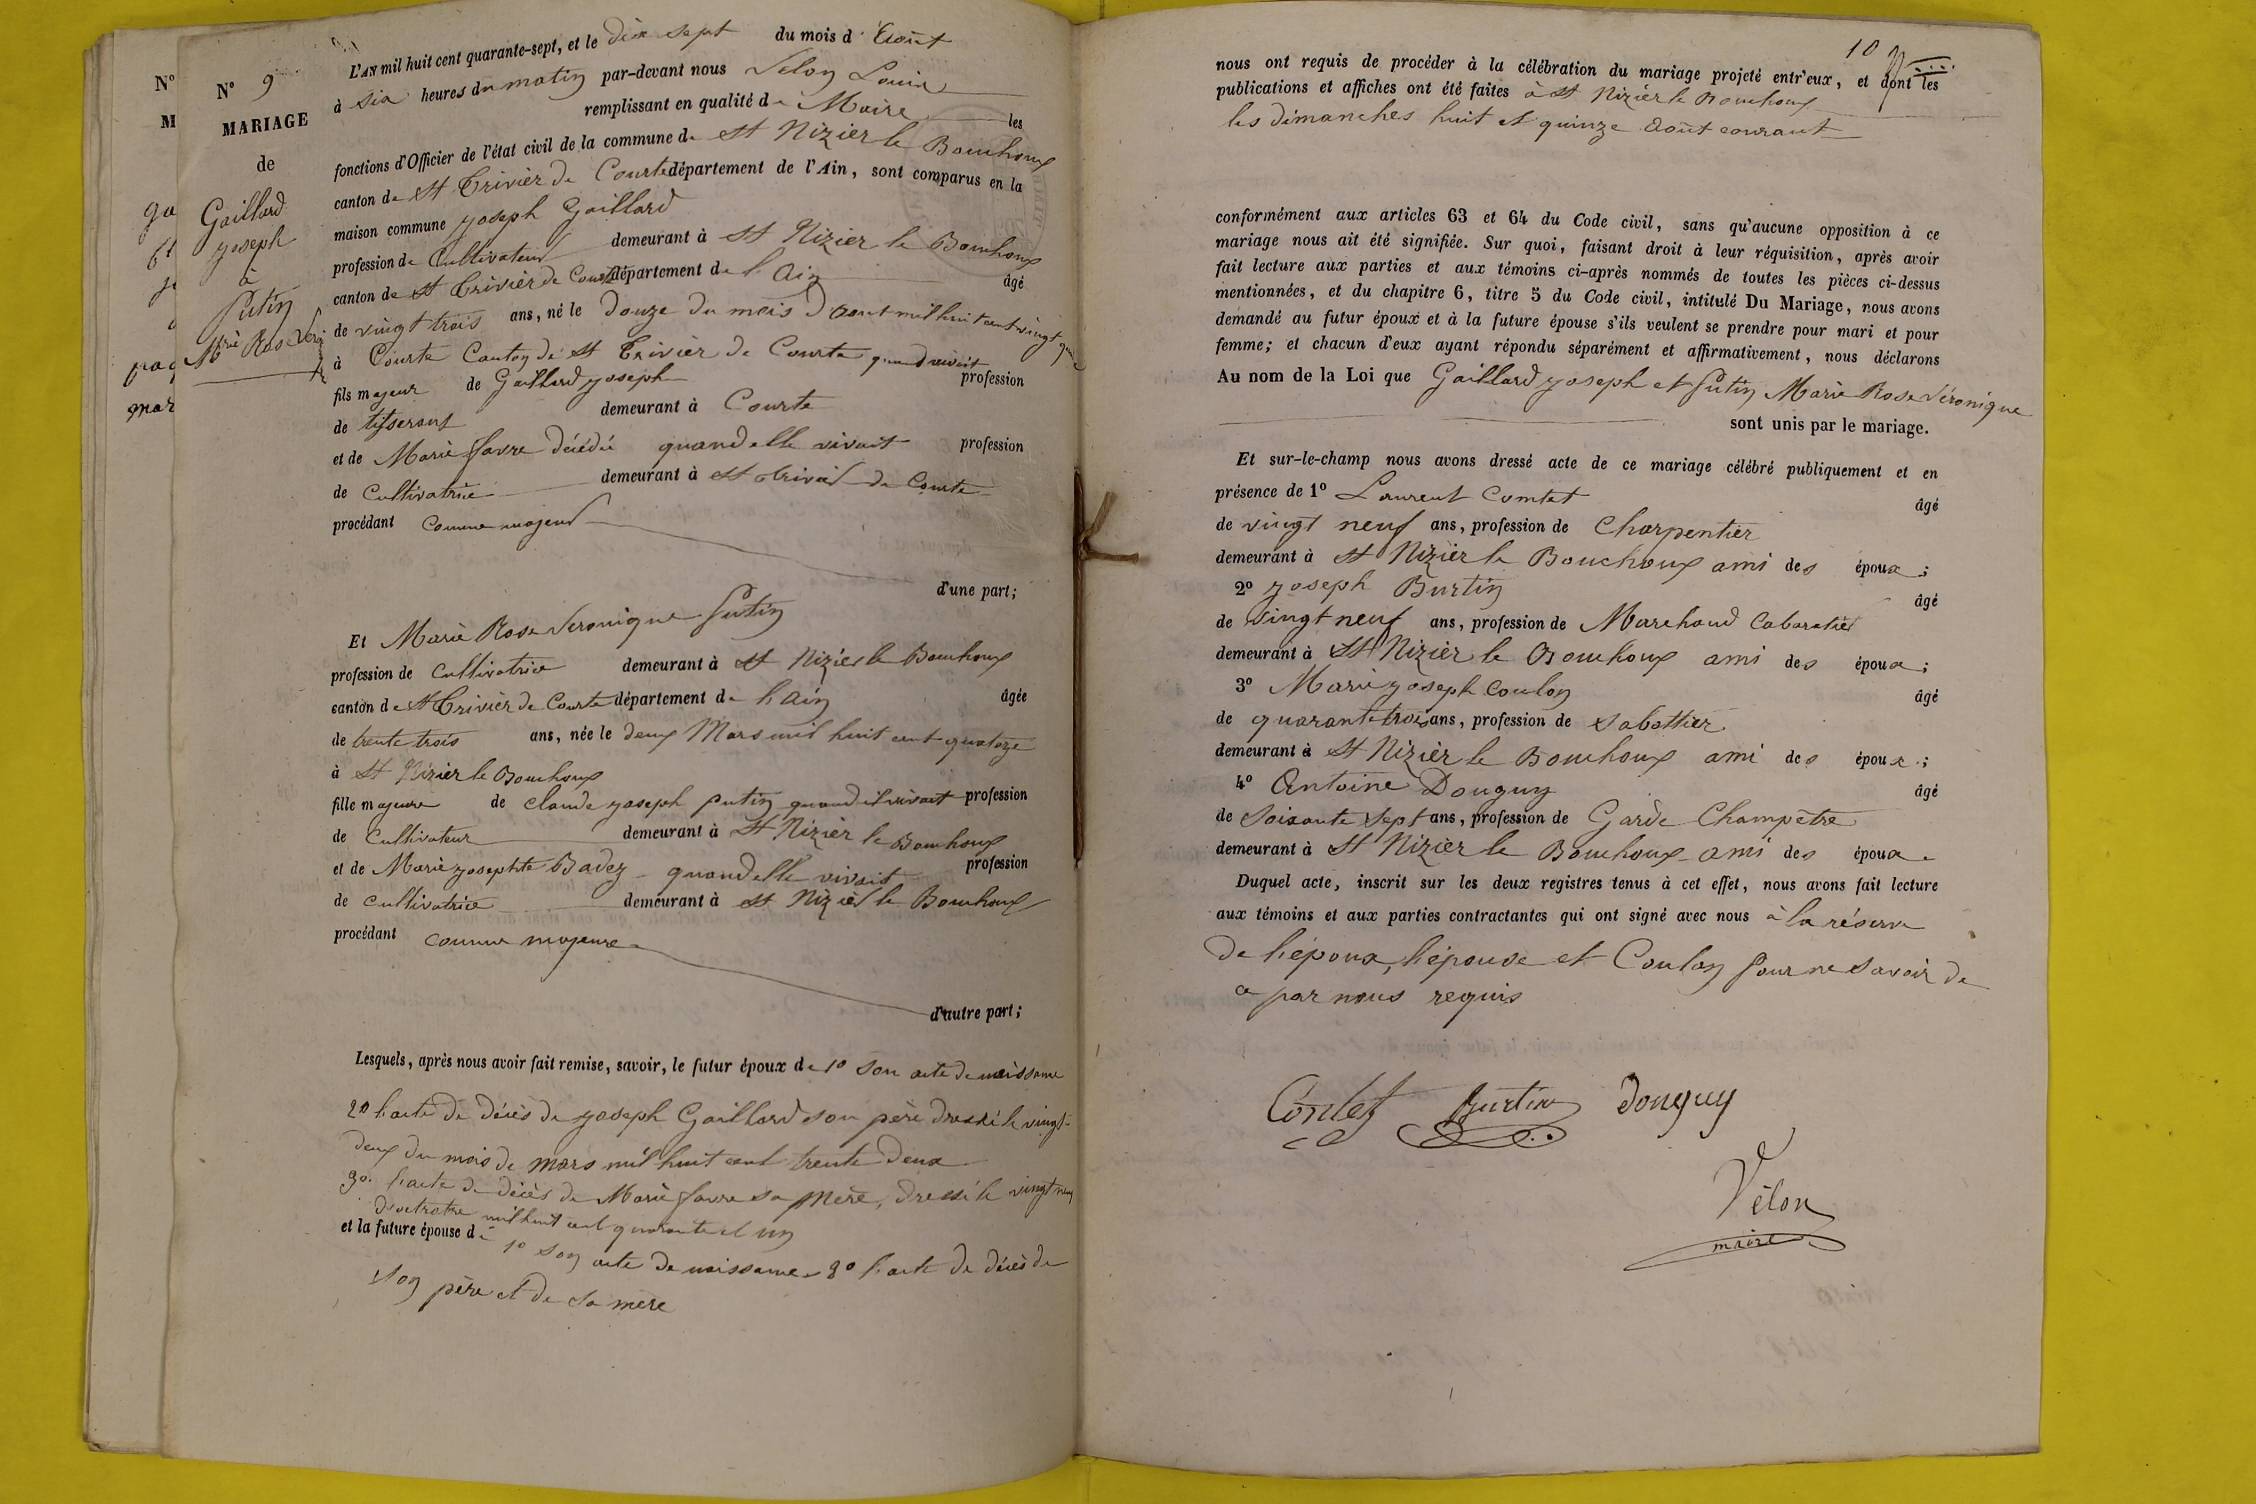 N° 9
MARIAGE
de
Gaillard
joseph
à
Putin
Mrie Rose Vero
L'AN mil huit cent quarante-sept, et le dix sept du mois d'Août
à six heures du matin par-devant nous Velon Louis
remplissant en qualité de Maire les
fonctions d'Officier de l'état civil de la commune de St Nizier le Bouchoux
canton de St Trivier de Courte département de l'Ain, sont comparus en la
maison commune joseph Gaillard
profession de Cultivateur demeurant à St Nizier le Bouhoux
canton de St Trivier de Courte département de l'Ain âgé
de vingt trois ans, né le douze du mois d'aout mil huit cent vingt
à Courte Canton de St Trivier de Courte quand vivait
fils majeur de Gaillard joseph profession
de tisserant demeurant à Courte
et de Marie favre décédée quand elle vivait profession
de Cultivatrice demeurant à St trivier de Courte
procédant comme majeur
d'une part;
Et Marie Rose Veronique Putin
profession de cultivatrice demeurant à St Nizier le Bouhoux
canton de St Trivier de Courte département de l'ain âgée
de trente trois ans, née le deux Mars mil huit cent quatoze
à St Nizier le Bouhoux
fille majeure de claude joseph putin quand il vivait profession
de Cultivateur demeurant à St Nizier le Bouhoux
et de Marie josephte Badez quand elle vivait profession
de cultivatrice demeurant à St Nizier le Bouhoux
procédant comme majeure
d'autre part;
Lesquels, après nous avoir fait remise, savoir, le futur époux de 1° son acte de naissance
2° l'acte de décès de joseph Gaillard son père dressé le vingt-
deux du mois de mars mil huit cent trente deux
3° l'acte de décès de Marie favre sa mère, dressé le vingt neuf
d'octobre mil huit cent quarante et un
et la future épouse de 1° son acte de naissance 2° l'acte de décès de
son père et de sa mère
10
nous ont requis de procéder à la célébration du mariage projeté entr'eux, et dont les
publications et affiches ont été faites à St Nizier le Bouchoux
les dimanches huit et quinze Août courant
conformément aux articles 63 et 64 du Code civil, sans qu'aucune opposition à ce
mariage nous ait été signifiée. Sur quoi, faisant droit à leur réquisition, après avoir
fait lecture aux parties et aux témoins ci-après nommés de toutes les pièces ci-dessus
mentionnées, et du chapitre 6, titre 5 du Code civil, intitulé Du Mariage, nous avons
demandé au futur époux et à la future épouse s'ils veulent se prendre pour mari et pour
femme; et chacun d'eux ayant répondu séparément et affirmativement, nous déclarons
Au nom de la Loi que Gaillard joseph et Putin Marie Rose Véronique
sont unis par le mariage.
Et sur-le-champ nous avons dressé acte de ce mariage célébré publiquement et en
présence de 1° Laurent Comtet âgé
de vingt neuf ans, profession de Charpentier
demeurant à St Nizier le Bouchoux ami des époux;
2° joseph Burtin âgé
de vingt neuf ans, profession de Marchand Cabaratier
demeurant à St Nizier le Bouhoux ami des époux;
3° Marie joseph Coulon âgé
de quarante trois ans, profession de sabottier
demeurant à St Nizier le Bouhoux ami des époux;
4° Antoine Douguy âgé
de Soixante sept ans, profession de Garde Champetre
demeurant à St Nizier le Bouhoux ami des époux
Duquel acte, inscrit sur les deux registres tenus à cet effet, nous avons fait lecture
aux témoins et aux parties contractantes qui ont signé avec nous à la réserve
de l'époux, l'épouse et Coulon pour ne savoir de
ce par nous requis
Comtet Burtin Douguy
Vélon
maire